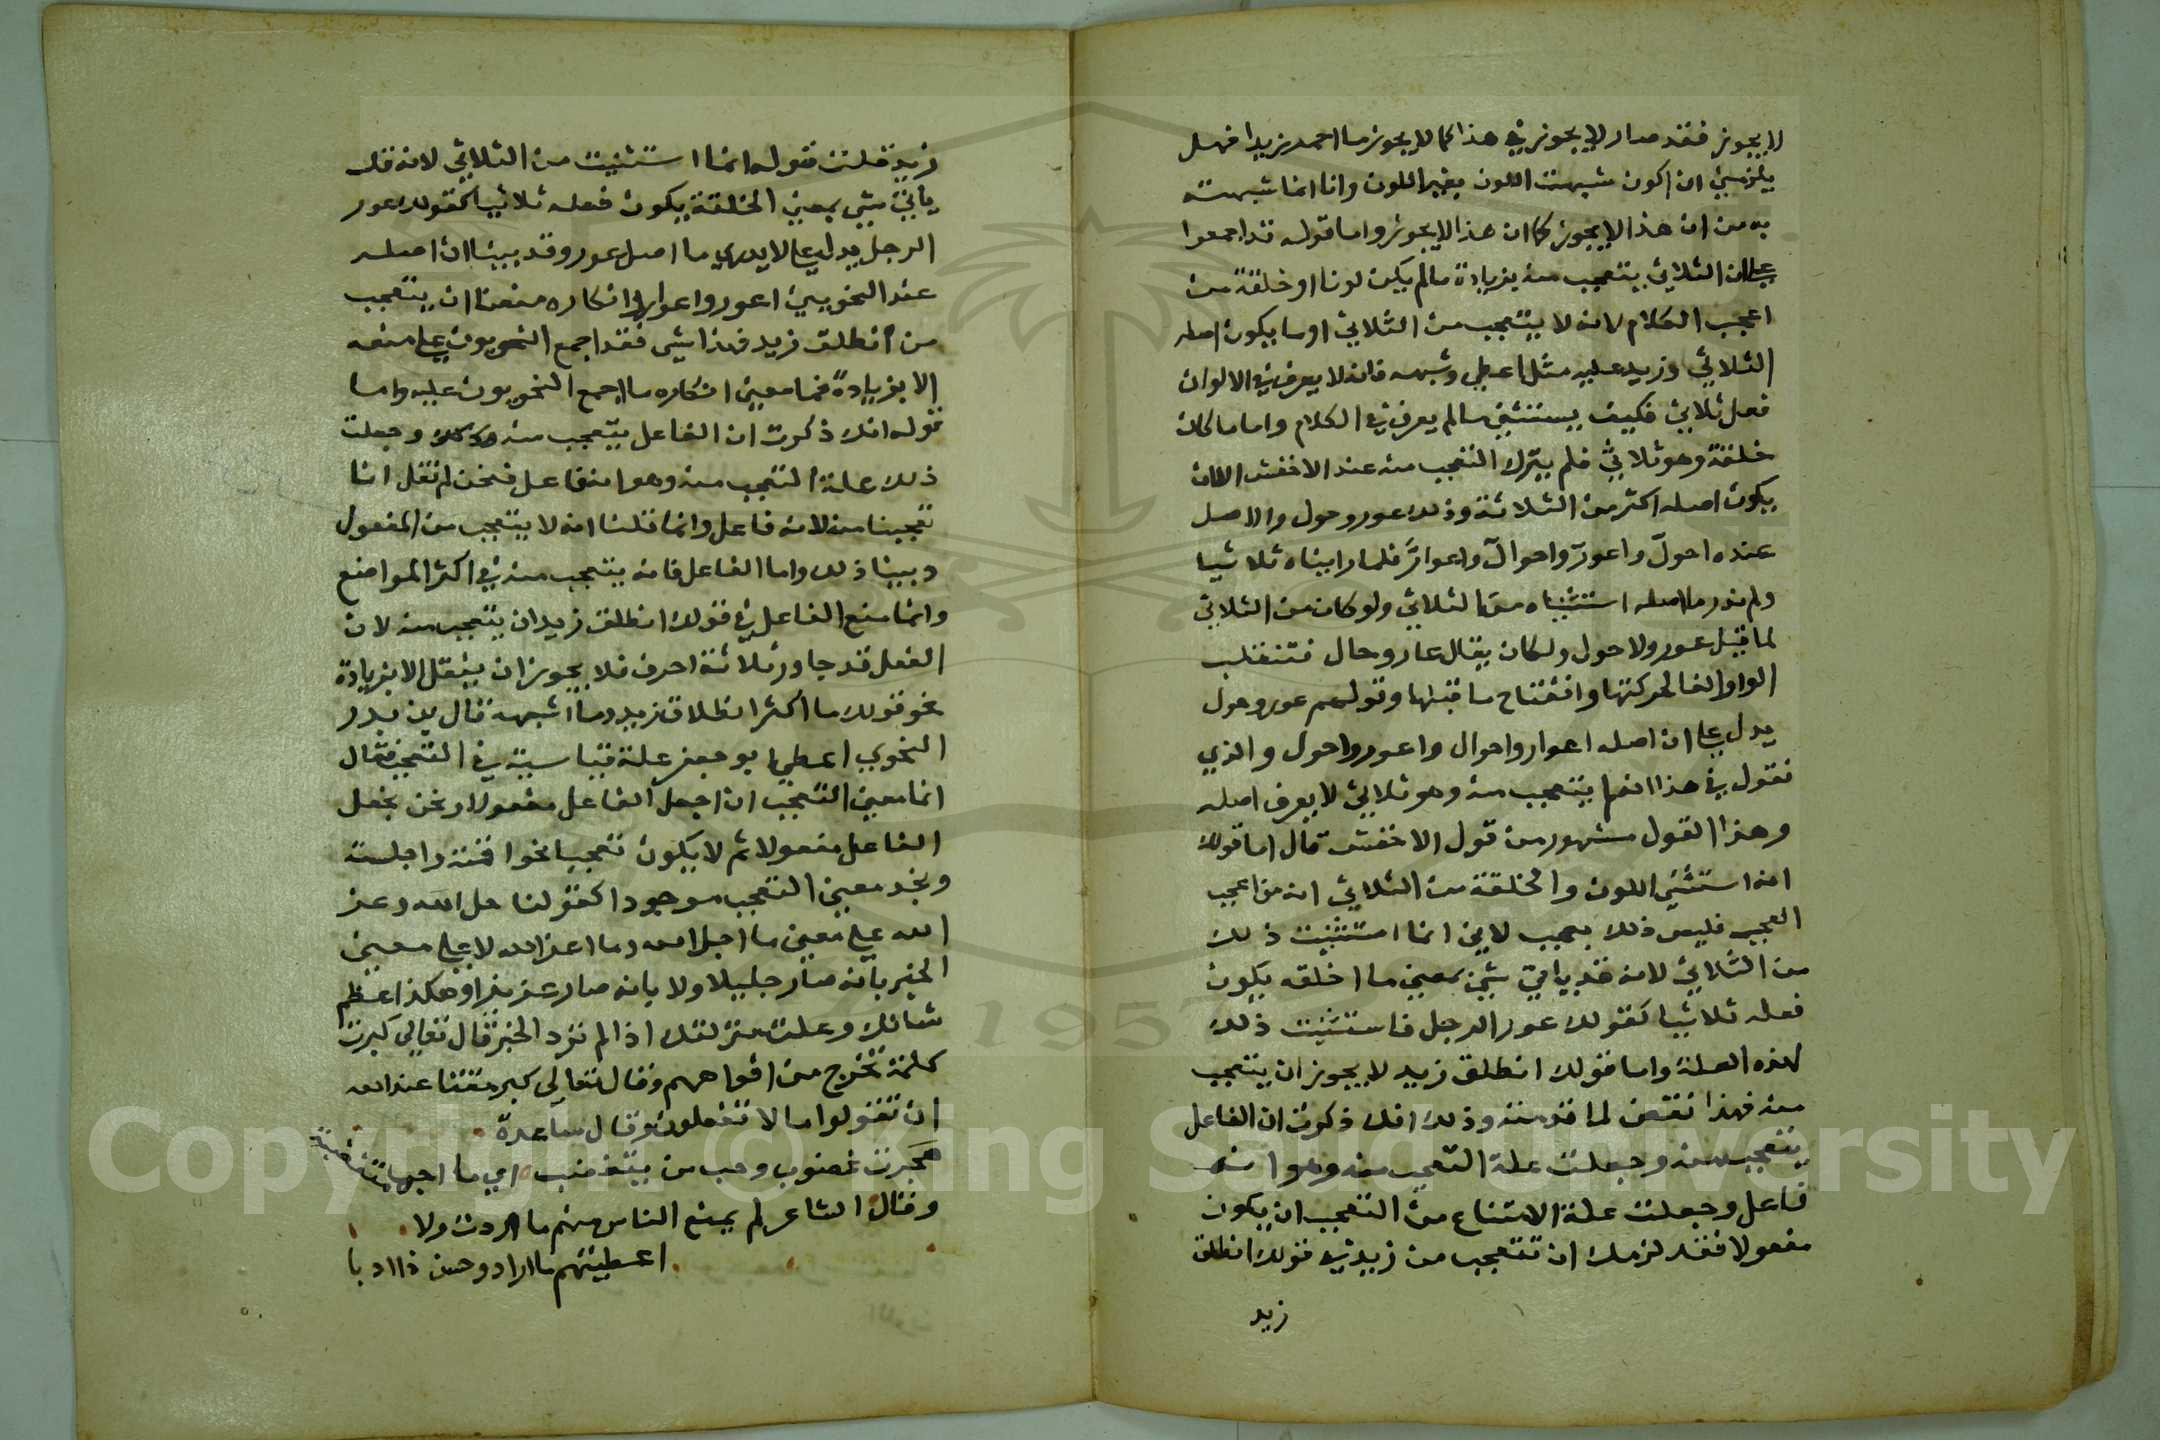 لا يجوز فقد صار لا يجوز في هذا كما لا يجوز ما احمر زيدا فهل
يلزمني ان اكون شبهت اللون بغير اللون وانا انما شبهته
به من ان هذا لا يجوز كما ان هذا لا يجوز واما قوله قد اجمعوا
على ان الثلاثي يتعجب منه بزيادة ما لم يكن لونا او خلقة من
اعجب الكلام لانه لا يتعجب من الثلاثي او ما يكون اصله
الثلاثي وزيد عليه مثل اعطى وشبهه فانه لا يعرف في الالوان
فعل ثلاثي فكيف يستثني ما لم يعرف في الكلام واما ما كان
خلقة وهو ثلاثي فلم يترك التعجب منه عند الاخفش الا ان
يكون اصله اكثر من الثلاثة وذلك عور وحول والاصل
عنده احول واعور واحوال واعوار فلما رايناه ثلاثيا
ولم ندر ما اصله استثنيناه من الثلاثي ولو كان من الثلاثي
لما قيل عور ولا حول ولكان يقال عار وحال فتنقلب
الواو الفا لحركتها وانفتاح ما قبلها وقولهم عور وحول
يدل على ان اصله اعوار واحوال واعور واحول والذي
نقول في هذا انما يتعجب منه وهو ثلاثي لا يعرف اصله
وهذا القول مشهور من قول الاخفش قال اما قولك
انه استثنى اللون والخلقة من الثلاثي انه من اعجب
العجب فليس ذلك بعجب لاني انما استثنيت ذلك
من الثلاثي لانه قد ياتي شي بمعنى ما اخلقه يكون
فعله ثلاثيا كقولك عور الرجل فاستثنيت ذلك
لهذه العلة واما قولك انطلق زيد لا يجوز ان يتعجب
منه فهذا نقض لما قدمته وذلك انك ذكرت ان الفاعل
يتعجب منه وجعلت علة التعجب منه وهو انه
فاعل وجعلت علة الامتناع من التعجب ان يكون
مفعولا فقد لزمك ان تتعجب من زيد في قولك انطلق
زيد
زيد قلت قوله انما استثنيت من الثلاثي لانه قد
ياتي شي بمعنى الخلقة يكون فعله ثلاثيا كقولك عور
الرجل يدل على الا يدري ما اصل عور وقد بينا ان اصله
عند النحويين اعور واعوار وانكاره منعنا ان يتعجب
من انطلق زيد فهذا شي فقد اجمع النحويون على منعه
الا بزيادة فما معنى انكاره ما اجمع النحويون عليه واما
قوله انك ذكرت ان الفاعل يتعجب منه وجعلت
ذلك علة التعجب منه وهو انه فاعل فنحن لم نقل انا
تعجبنا منه لانه فاعل وانما قلنا انه لا يتعجب من المفعول
وبينا ذلك واما الفاعل فانه يتعجب منه في اكثر المواضع
وانما منع الفاعل في قولك انطلق زيد ان يتعجب منه لان
الفعل قد جاوز ثلاثة احرف فلا يجوز ان ينقل الا بزيادة
نحو قولك ما اكثر انطلاق زيد وما اشبهه قال بن بدر
النحوي اعطى ابو جعفر علة قياسية في التعجب فقال
انما معنى التعجب ان اجعل الفاعل مفعولا ونحن نجعل
الفاعل مفعولا ثم لا يكون تعجبا نحو اقمته واجلسته
ونجد معنى التعجب موجودا كقولنا جل الله وعز
الله على معنى ما اجل الله وما اعز الله لا على معنى
الخبر بانه صار جليلا ولا بانه صار عزيزا وهكذا عظم
شانك وعلت منزلتك اذا لم ترد الخبر قال تعالى كبرت
كلمة تخرج من افواههم وقال تعالى كبر مقتا عند الله
ان تقولوا ما لا تفعلون وقال ساعدة
هجرت غضوب وحب من يتغضب اي ما احبها
وقال الشاعر لم يمنع الناس منهم ما اردت ولا
اعطيتهم ما ارادوا حسن ذا ادبا